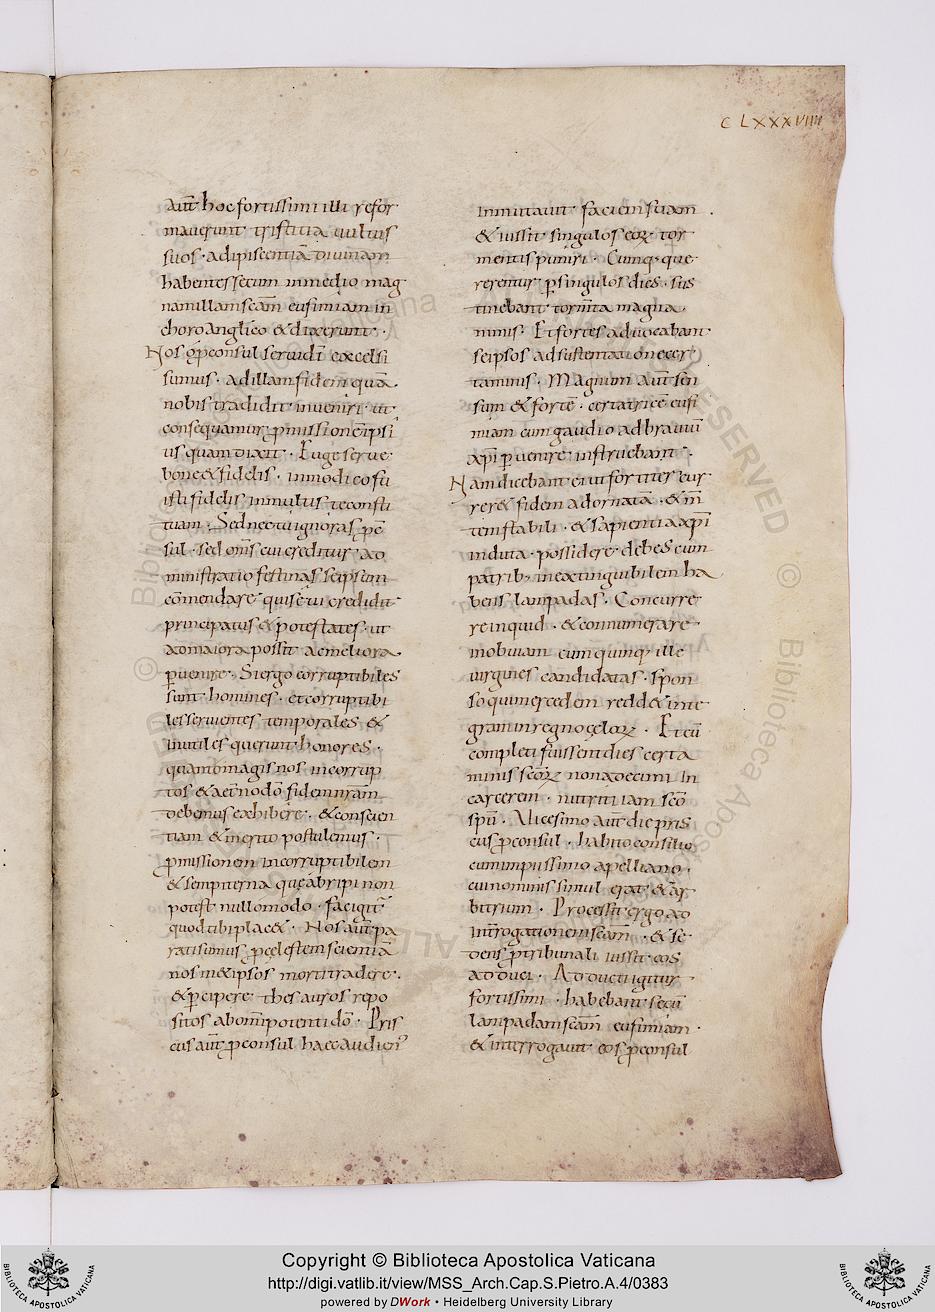 CLXXXVIIII
aut̄ hoc fortissimi illi refor
maverunt tristitia vultus
suos · adipiscentiā divinam
habentes secum in medio mag
nam illam sc̄am eufimiam in
choro Angelico & dixerunt ·
Nos p̄consul servi dī excelsi
sumus · ad illam fidem quā
nobis tradidit inveniri · ut
consequamur p̄missionē ipsi
us quam dixit · Euge serve
bone & fidelis · in modico fu
isti fidelis in multis te consti
tuam · Sed nec tu ignoras p̄c̄
sul · sed om̄s cui creditur ad
ministratio festinas seipsum
cōmendare qui se tu credidit
principatus & potestates · ut
ad maiora possit ac meliora
p̄venire · Si ergo corruptibiles
sunt homines · et corruptibi
les servientes temporales &
inutiles querunt honores ·
quanto magis nos incorrup
tos & aet̄no dō fidem nr̄am
debemus exhibere · & conscien
tiam & merito postulemus ·
p̄missionem incorruptibilem
& sempiterna que abripi non
potest nullo modo · fac igit̄
quod tibi plac& · Nos aut̄ pa
ratisumus p̄ celestem scientiā
nosm&ipsos morti tradere ·
& p̄cipere thesauros repo
sitos ab om̄ipotenti dō · Pris
cus aut̄ p̄consul haec audien'
inmutavit faciem suam ·
& iussit singulos eoꝝ tor
mentis puniri · Cumq· que
rerentur p̄ singulos dies · sus
tinebant torm̄ta magna
nimis · Et fortes advocabant
seipsos ad sustentationē cer
taminis · Magnum aut̄ sen
sum & fortē · certatricē eufi
miam cum gaudio ad braviū
xp̄i p̄venire instruebant ·
Nam dicebant ei ut fortiter cur
rer& fidem adornata · & m̄
tem stabili · & sapientia xp̄i
induta · possidere debes cum
patrib; inextinguibilem ha
bens lampadas · Concurre
re inquid · & connumerare
in obviam cum quinq· ille
virgines candidatas · spon
so qui mercedem redd& inte
gram in regno celoꝝ · Et cū
completi fuissent dies certa
minis sc̄oꝝ non&decim in
carcerem · nutriti iam sc̄o
sp̄u · Vicesimo aut̄ die pris
cus p̄consul · habito consilio
cum impiissimo apelliano ·
cui nominis simul erat & ar
bitrium · Processit ergo ad
int̄rogationem sc̄am · & se
dens p̄ tribunali iussit eos
adduci · Adducti igitur
fortissimi · habebant secū
lampadam sc̄am eufimiam ·
& interrogavit eos p̄consul
Copyright © Biblioteca Apostolica Vaticana
http://digi.vatlib.it/view/MSS_Arch.Cap.S.Pietro.A.4/0383
powered by DWork • Heidelberg University Library